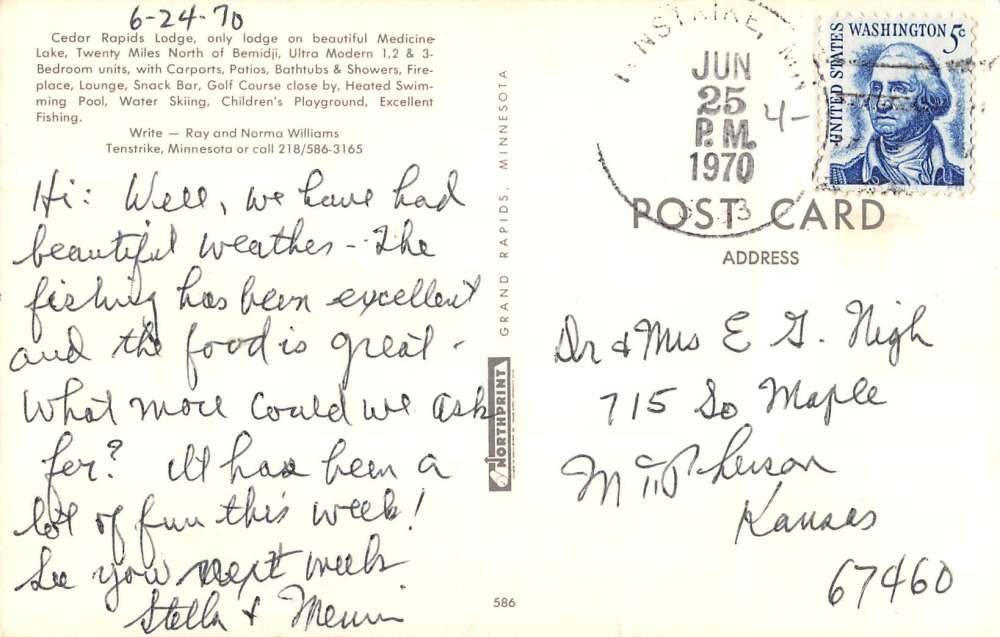 6-24-70
Cedar Rapids Lodge, only lodge on beautiful Medicine-
Lake, Twenty Miles North of Bemidji, Ultra Modern 1,2 & 3-
Bedroom units, with Carports, Patios, Bathtubs & Showers, Fire-
place, Lounge, Snack Bar, Golf Course close by, Heated Swim-
ming Pool, Water Skiing, Children's Playground, Excellent
Fishing.
Write — Ray and Norma Williams
Tenstrike, Minnesota or call 218/586-3165
Hi: Well, we have had
beautiful weather - The
fishing has been excellent
and the food is great -
What more could we ask
for? It has been a
lot of fun this week!
See you next week
Stella &
GRAND RAPIDS, MINNESOTA
NORTHPRINT
586
NSTRIKE, MN
JUN
25
P.M.
1970
4-
UNITED STATES
WASHINGTON 5c
POST CARD
ADDRESS
Dr & Mrs E G. Nigh
715 So Maple
McPherson
Kansas
67460